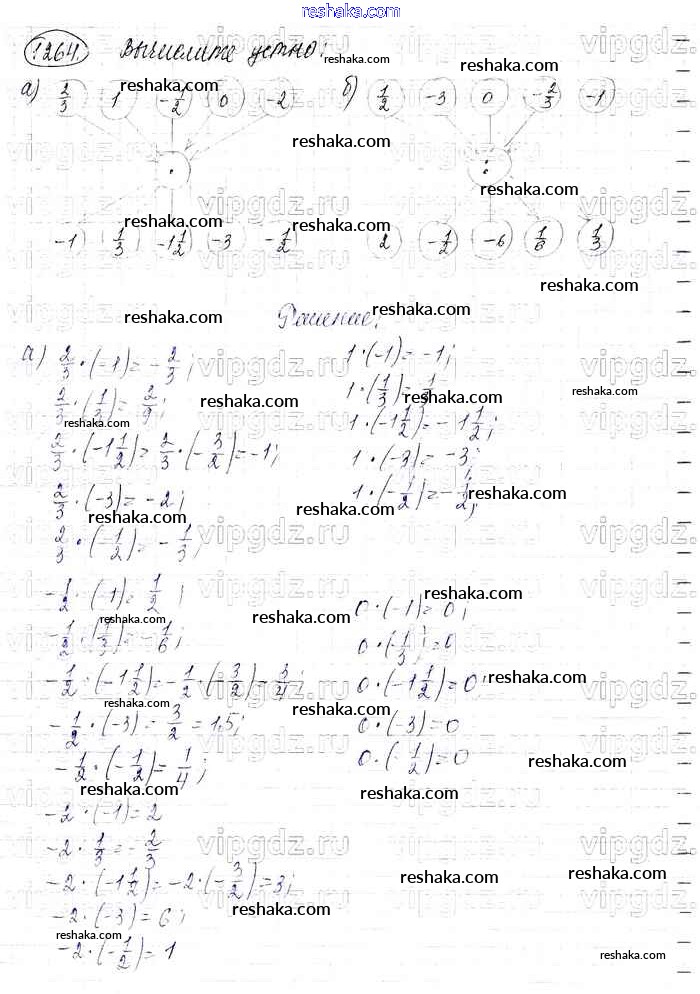 reshaka.com
1264. Вычислите устно:
а) 2/3 1 -1/2 0 -2 б) 1/2 -3 0 -2/3 -1
· :
-1 1/3 -1 1/2 -3 -1/2 2 -1/2 -6 1/6 1/3
Решение:
а) 2/3 · (-1) = -2/3;
2/3 · (1/3) = 2/9;
2/3 · (-1 1/2) = 2/3 · (-3/2) = -1;
2/3 · (-3) = -2;
2/3 · (-1/2) = -1/3;
1 · (-1) = -1;
1 · (1/3) = 1/3
1 · (-1 1/2) = -1 1/2;
1 · (-3) = -3;
1 · (-1/2) = -1/2;
-1/2 · (-1) = 1/2;
-1/2 · (1/3) = -1/6;
-1/2 · (-1 1/2) = -1/2 · (-3/2) = 3/4;
-1/2 · (-3) = 3/2 = 1,5;
-1/2 · (-1/2) = 1/4;
0 · (-1) = 0;
0 · (1/3) = 0
0 · (-1 1/2) = 0;
0 · (-3) = 0
0 · (-1/2) = 0
-2 · (-1) = 2
-2 · 1/3 = -2/3
-2 · (-1 1/2) = -2 · (-3/2) = 3;
-2 · (-3) = 6;
-2 · (-1/2) = 1